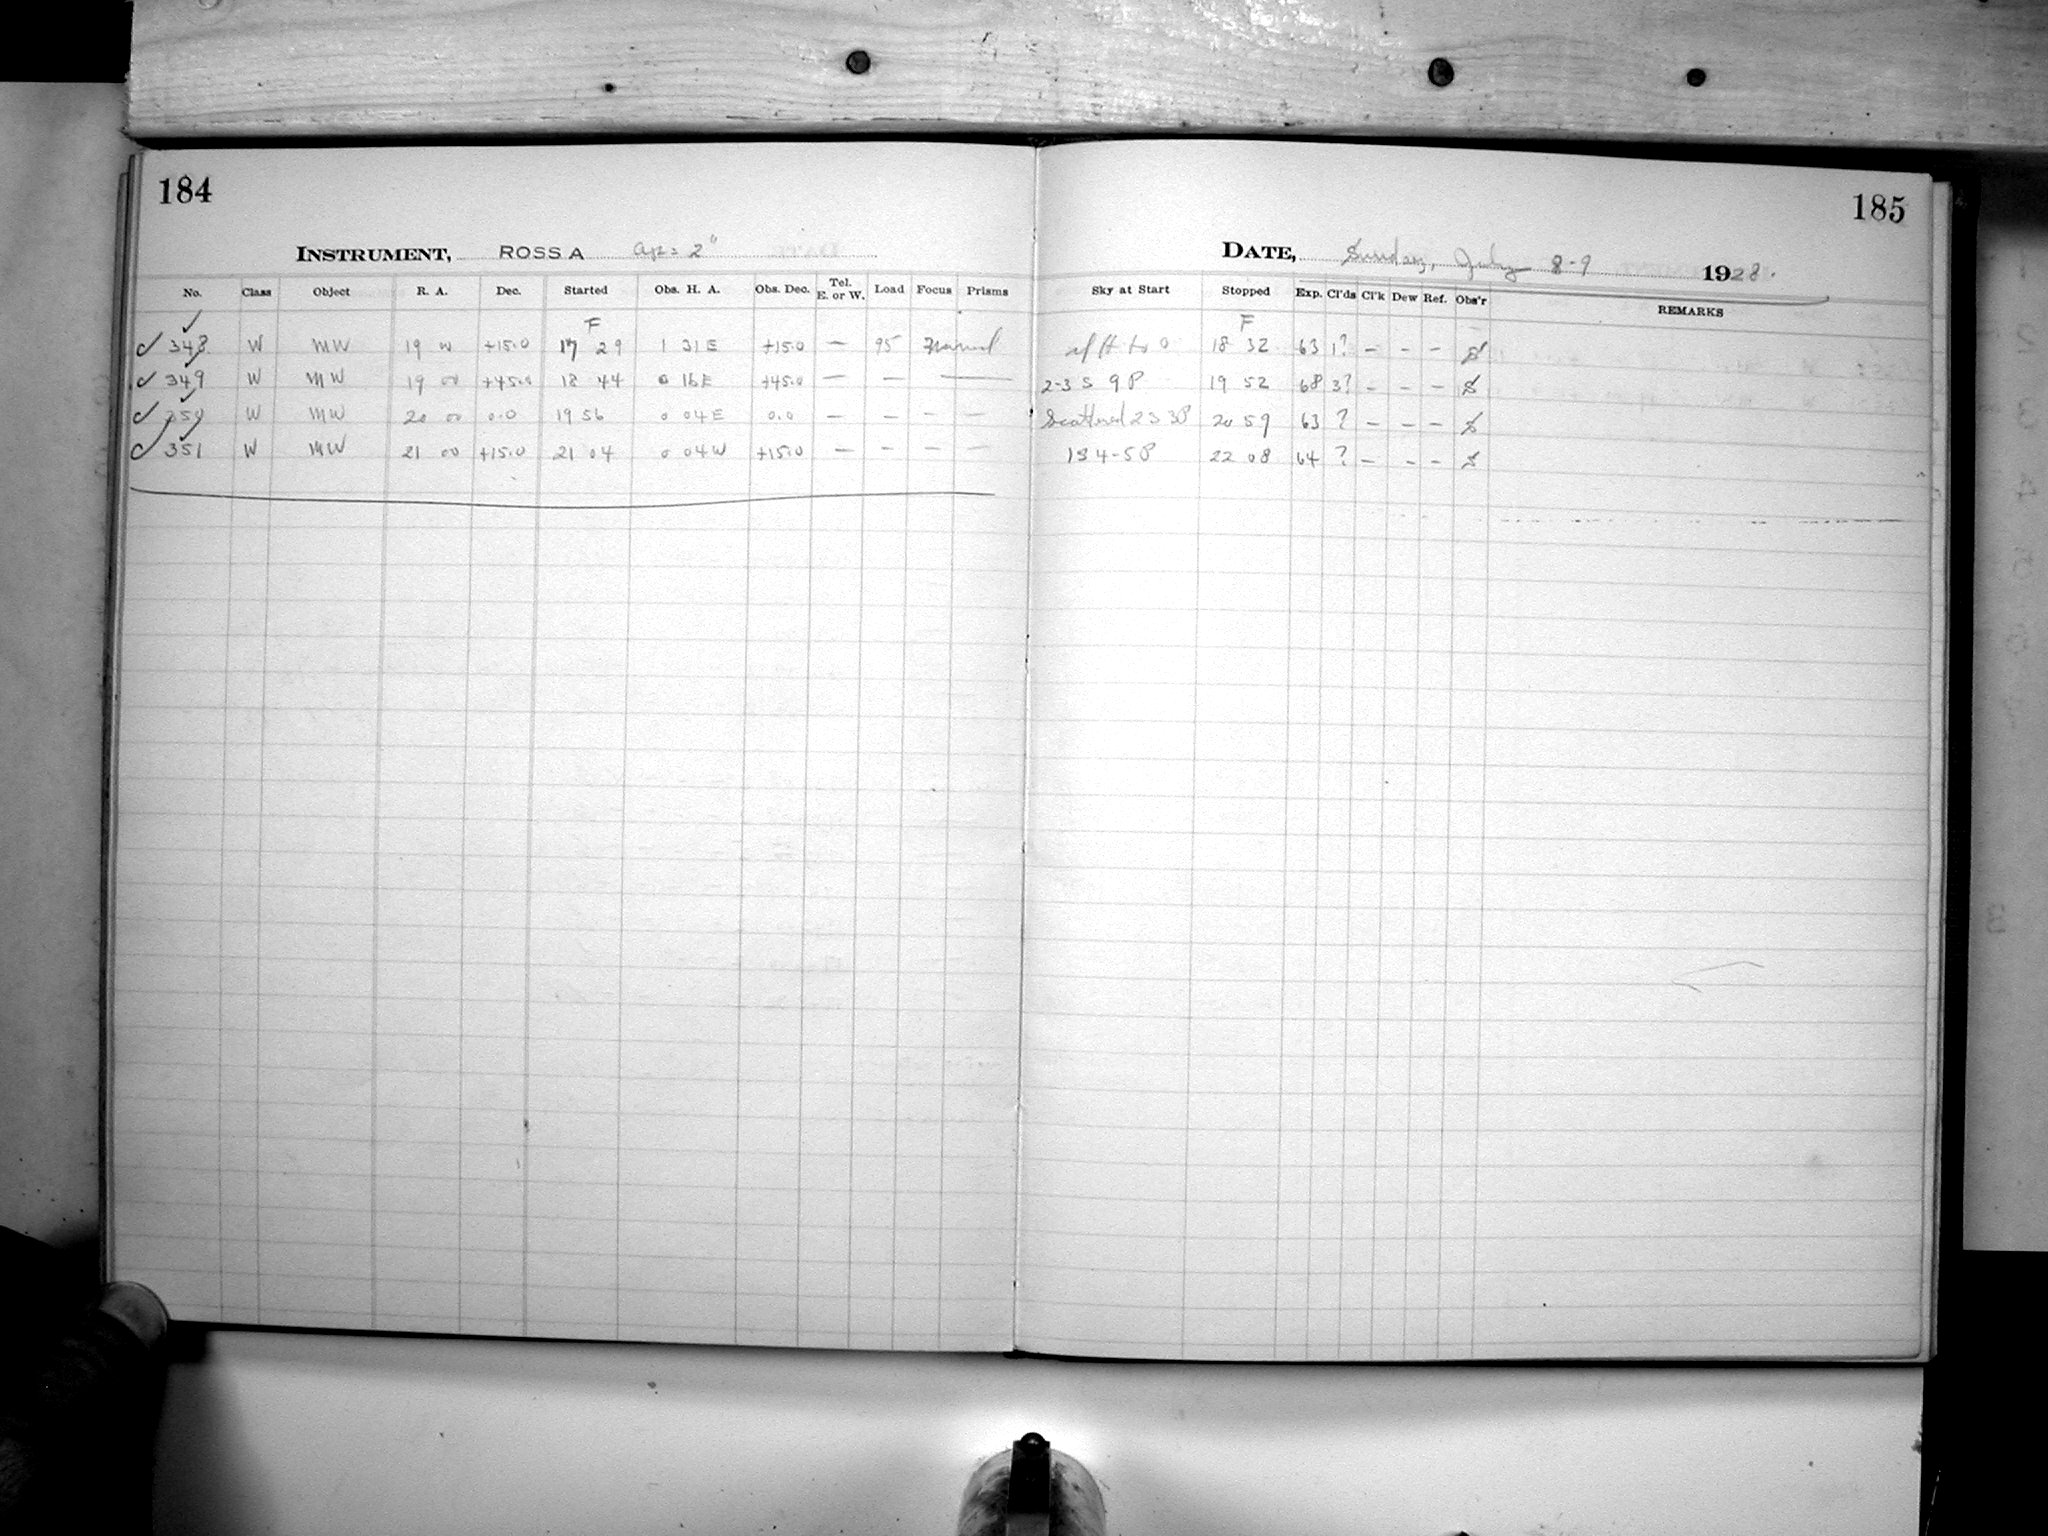 184
INSTRUMENT, ROSS A ap = 2"
No. Class Object R. A. Dec. Started Obs. H. A. Obs. Dec. Tel. E. or W. Load Focus Prisms
F
✓ 348 W MW 19 00 +15.0 17 29 1 31 E +15.0 — 95
✓ 349 W MW 19 00 +45.0 18 44 0 16 E +45.0 — — —
✓ 350 W MW 20 00 0.0 19 56 0 04 E 0.0 — — — —
✓ 351 W MW 21 00 +15.0 21 04 0 04 W +15.0 — — — —
185
DATE, Sunday, July 8-9 1928.
Sky at Start Stopped Exp. Cl'ds Cl'k Dew Ref. Obs'r REMARKS
F
18 32 63 1? — — —
2-3 S 9 P 19 52 68 3? — — — S
Scattered 2 S 3P 20 59 63 ? — — — S
1 S 4-5 P 22 08 64 ? — — — S